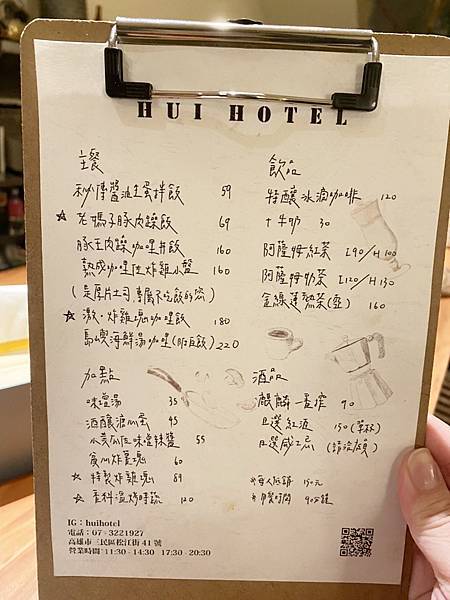 HUI HOTEL
主餐
秘傳醬油生蛋拌飯 59
☆ 老媽子豚肉燥飯 69
豚王肉燥咖哩丼飯 160
熟成咖哩佐炸雞小盤 160
(是厚片土司專屬不吃飯的您)
☆ 激・炸雞塊咖哩飯 180
海鮮湯咖哩(附白飯) 220
加點
味噌湯 35
酒釀溏心蛋 45
小黃瓜佐味噌辣醬 55
炸薯塊 60
☆ 特製炸雞塊 89
☆ 香料溫烤時蔬 120
飲品
特釀冰滴咖啡 120
+牛奶 30
阿薩姆紅茶 I 90/H 100
阿薩姆奶茶 I 120/H 130
金線蓮熱茶(壺) 160
酒品
麒麟一番搾 90
日選紅酒 150(單杯)
日選威士忌 (請洽櫃)
*每人低銷 150元
*用餐時間 90分鐘
IG：huihotel
電話：07 - 3221927
高雄市三民區松江街 41 號
營業時間 11:30 - 14:30 17:30 - 20:30